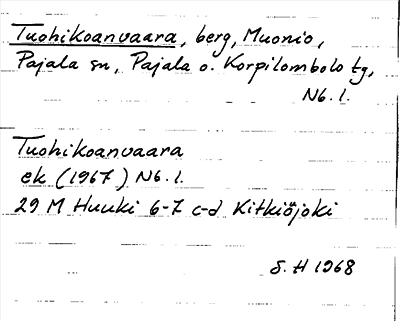 Tuohikoanvaara, berg, Muonio,
Pajala sn, Pajala o. Korpilombolo tg,
Nb. l.
Tuohikoanvaara
ek (1967) Nb. l.
29 M Huuki 6-7 c-d Kitkiöjoki
S. H 1968